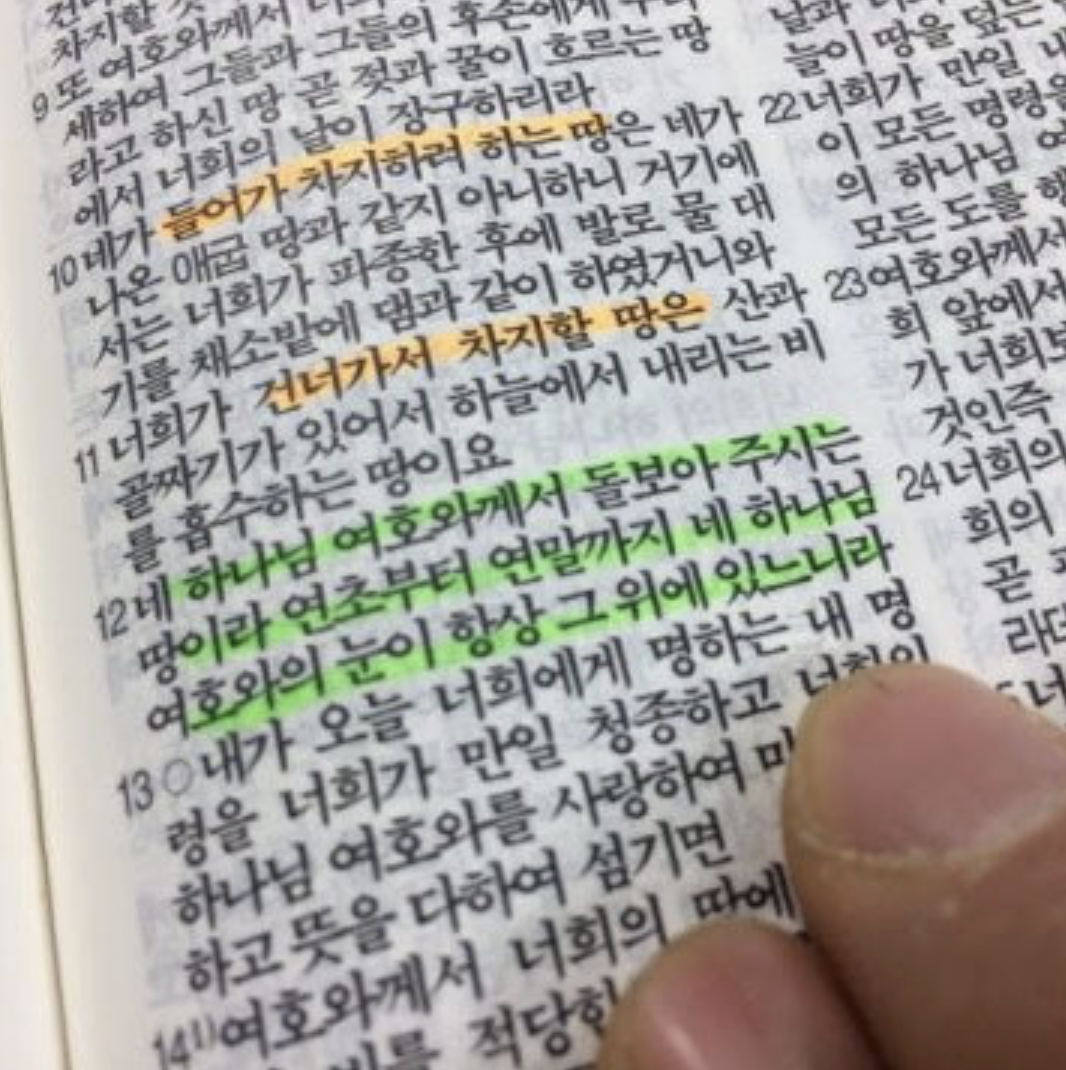 차지할
9 또 여호와께서 너희의
세하여 그들과 그들의 후손에게
라고 하신 땅 곧 젖과 꿀이 흐르는 땅
에서 너희의 날이 장구하리라
10 네가 들어가 차지하러 하는 땅은 네가
나온 애굽 땅과 같지 아니하니 거기에
서는 너희가 파종한 후에 발로 물 대
기를 채소밭에 댐과 같이 하였거니와
11 너희가 건너가서 차지할 땅은 산과
골짜기가 있어서 하늘에서 내리는 비
를 흡수하는 땅이요
12 네 하나님 여호와께서 돌보아 주시는
땅이라 연초부터 연말까지 네 하나님
여호와의 눈이 항상 그 위에 있느니라
13 ○내가 오늘 너희에게 명하는 내 명
령을 너희가 만일 청종하고 너희의
하나님 여호와를 사랑하여
하고 뜻을 다하여 섬기면
14 1)여호와께서 너희의 땅에
비를 적당한
늘이 땅을 덮는
22 너희가 만일
이 모든 명령을
의 하나님 여
모든 도를 행
23 여호와께서
희 앞에서
가 너희보
것인즉
24 너희의
희의
곧